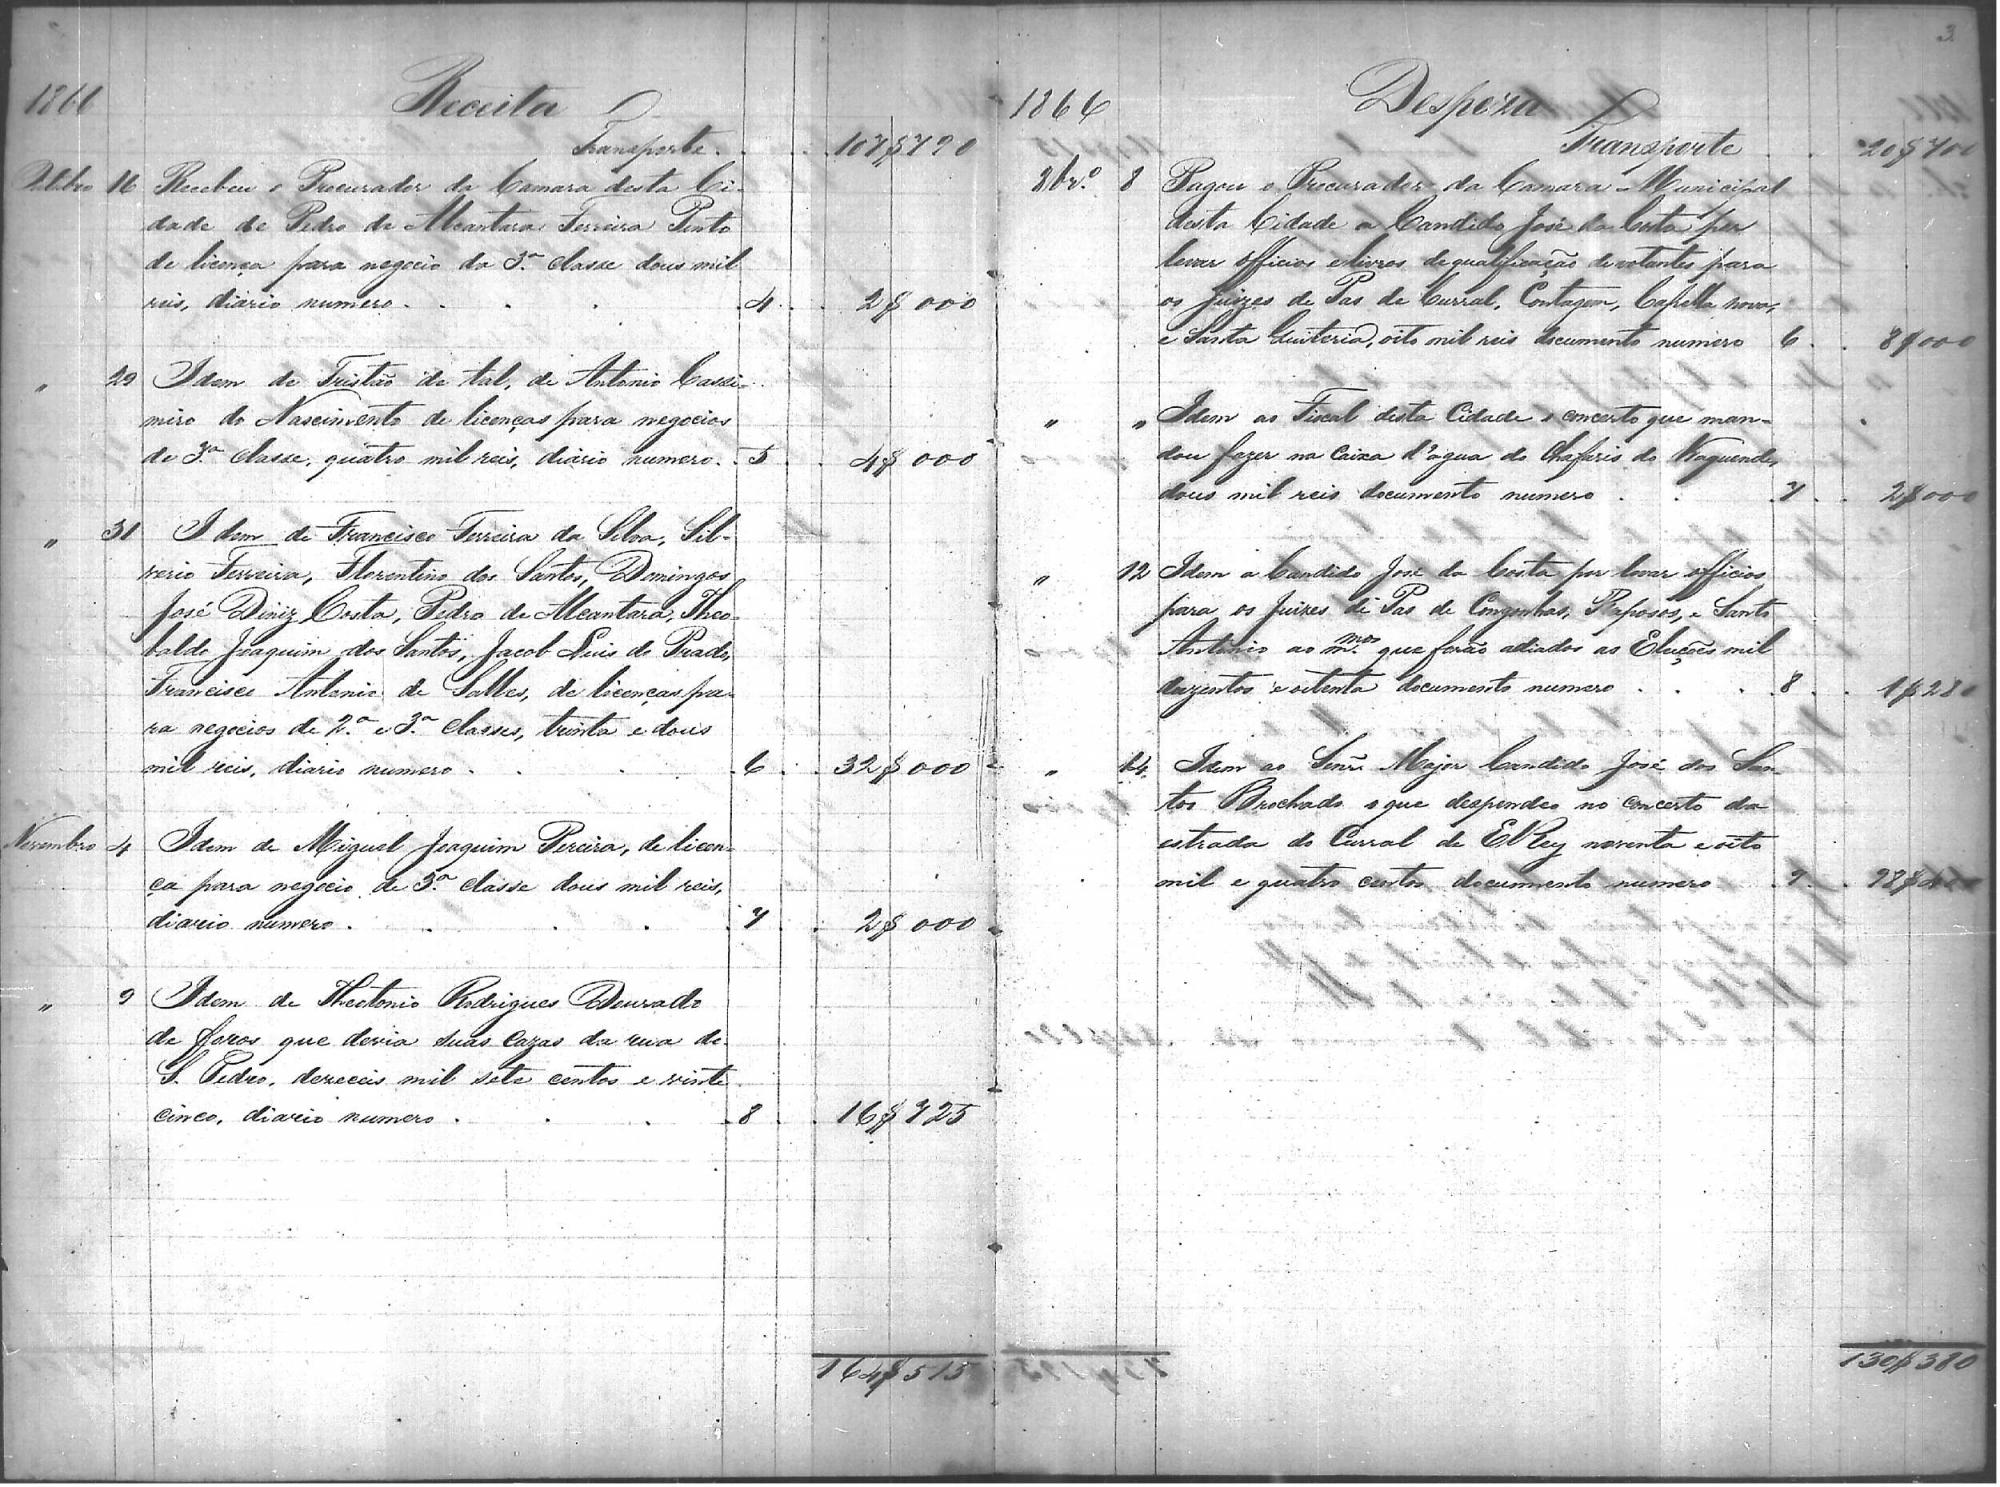 1861
Receita
Transporte . . . 107$790
Outubro 16 Recebeu o Procurador da Camara desta Ci-
dade de Pedro de Alcantara Ferreira Pinto
de licença para negocio da 3.ª classe dous mil
reis, diario numero . . . 4 . . 2$000
" 29 Idem de Tristão de tal, de Antonio Cassi-
miro do Nascimento de licenças para negocios
de 3.ª classe, quatro mil reis, diario numero . . 5 . . 4$000
" 31 Idem de Francisco Ferreira da Silva, Sil-
verio Ferreira, Florentino dos Santos, Domingos
José Diniz Costa, Pedro de Alcantara, Theo-
baldo Joaquim dos Santos, Jacob Luis do Prado,
Francisco Antonio de Salles, de licenças pa-
ra negocios de 2.ª e 3.ª classes, trinta e dous
mil reis, diario numero . . . 6 . . 32$000
Novembro 4 Idem de Miguel Joaquim Pereira, de licen-
ça para negocio de 3.ª classe dous mil reis,
diario numero . . . . 7 . . 2$000
" 9 Idem de Theotonio Rodrigues Dourado
de foros que devia suas cazas da rua de
S. Pedro, dezeceis mil sete centos e vinte
cinco, diario numero . . . 8 . . 16$725
164$515
3
1866
Despeza
Transporte . . 20$700
8br.º 8 Pagou o Procurador da Camara Municipal
desta Cidade a Candido José da Costa por
levar officios e livros de qualificação de votantes para
os Juizes de Pas de Curral, Contagem, Capella nova,
e Santa Quiteria, oito mil reis documento numero 6 . . 8$000
" " Idem ao Fiscal desta Cidade o concerto que man-
dou fazer na caixa d'agua do Chafaris do
dous mil reis documento numero . . 7 . . 2$000
" 12 Idem a Candido José da Costa por levar officios
para os Juizes de Pas de Congonhas, Raposos, e Santo
Antonio ao m.mos que forão adiados as Eleições mil
duzentos e oitenta documento numero . . . 8 . . 1$280
" 14 Idem ao Senr. Major Candido José dos San-
tos Brochado o que despendeo no concerto da
estrada do Curral de El Rey noventa e oito
mil e quatro centos documento numero . 9 . . 98$400
130$380